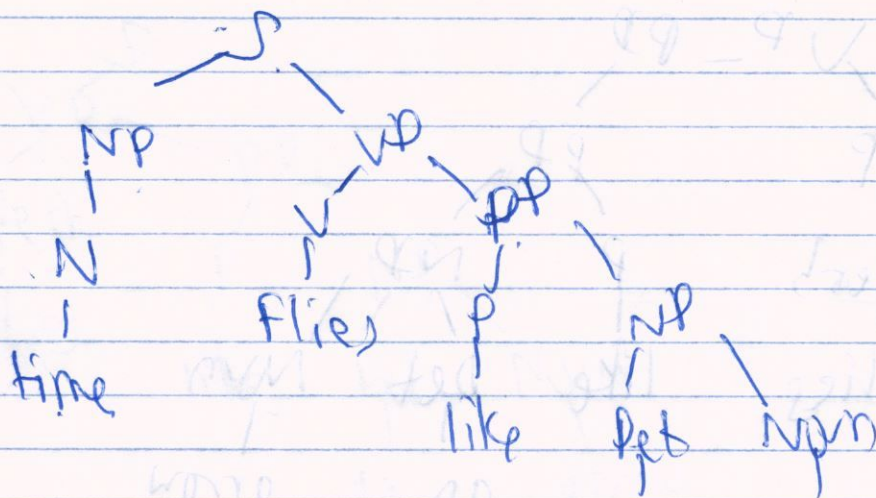 S
NP VP
N V PP
time flies P NP
like Det Noun